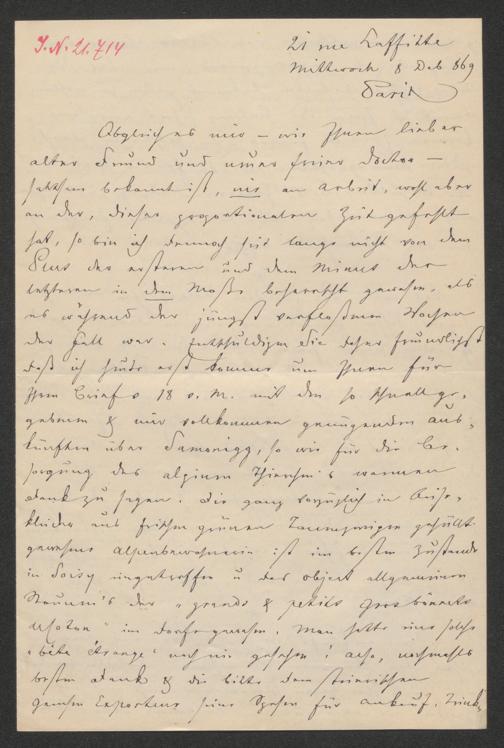 J.N. 21.714
21 rue Laffitte
Mittwoch 8 Deb 869
Paris
Obgleich es mir – wie Ihnen lieber
alter Freund und neuer freier Doctor –
sattsam bekannt ist, nie an Arbeit, wohl aber
an der, dieser proportionalen Zeit gefehlt
hat, so bin ich dennoch seit lange nicht von dem
Plus der ersteren und dem Minus der
letzteren in dem Maße beherrscht gewesen, als
es während der jüngst verflossenen Wochen
der Fall war. Entschuldigen Sie daher freundlichst
daß ich heute erst komme um Ihnen für
Ihren Brief v 18 v. M. mit den so schnell ge-
gebenen & mir vollkommen genügenden Aus-
künften über Samonigg, so wie für die Be-
sorgung des alpinen Thierchen's warmen
Dank zu sagen. Die ganz vorzüglich in
aus frischen grünen Tannenzweigen gehüllt
gewesene Alpenbewohnerin ist im besten Zustande
in Soisy eingetroffen u das Object allgemeinen
Staunen's der "grands & petits
" im Dorfe gewesen. Man hatte eine solche
"bête étrange" noch nie gesehen! Also, nochmals
besten Dank & die Bitte dem steirischen
Gemsen Exporteur seine Spesen für Ankauf, Trink-